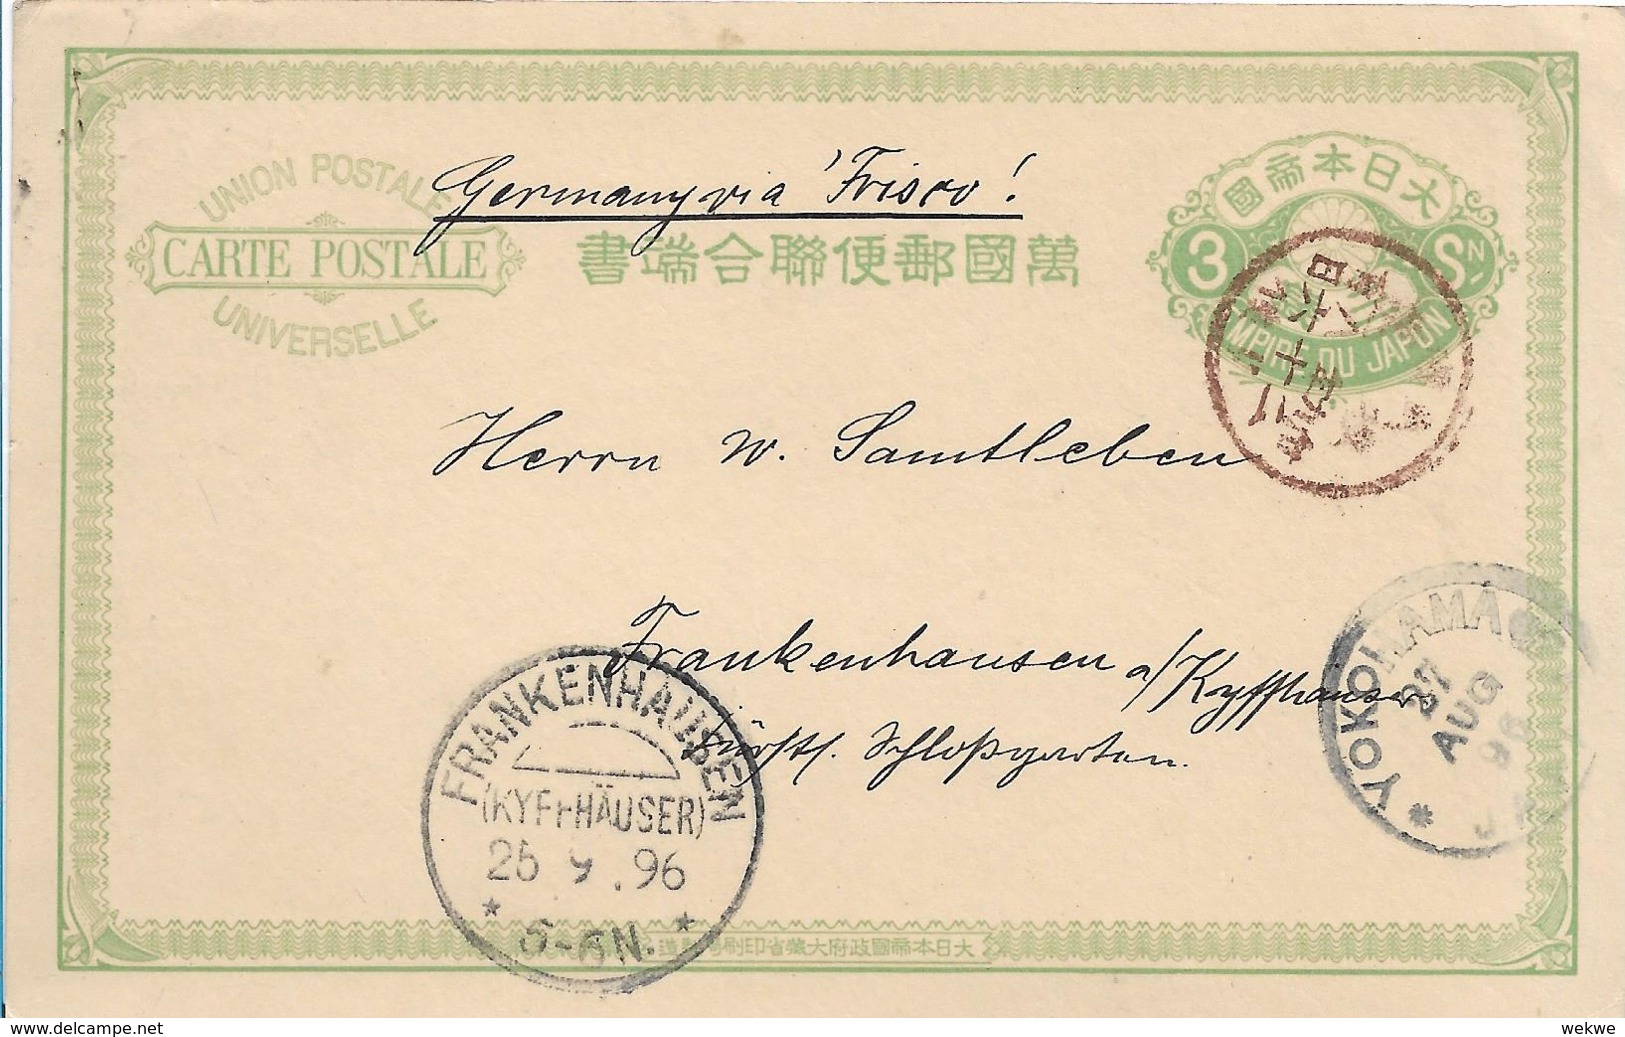 Germany via 'Frisco!
UNION POSTALE
CARTE POSTALE
UNIVERSELLE
書端合聯便郵國萬
國帝本日大
3 SN
EMPIRE DU JAPON
Herrn W. Samtleben
Frankenhausen a/Kyffhäuser
Fürstl. Schloßgarten.
YOKOHAMA
27
AUG
96
FRANKENHAUSEN
(KYFFHÄUSER)
9.96
5-6N.
大日本帝國政府大藏省印刷局製造
www.delcampe.net
wekwe